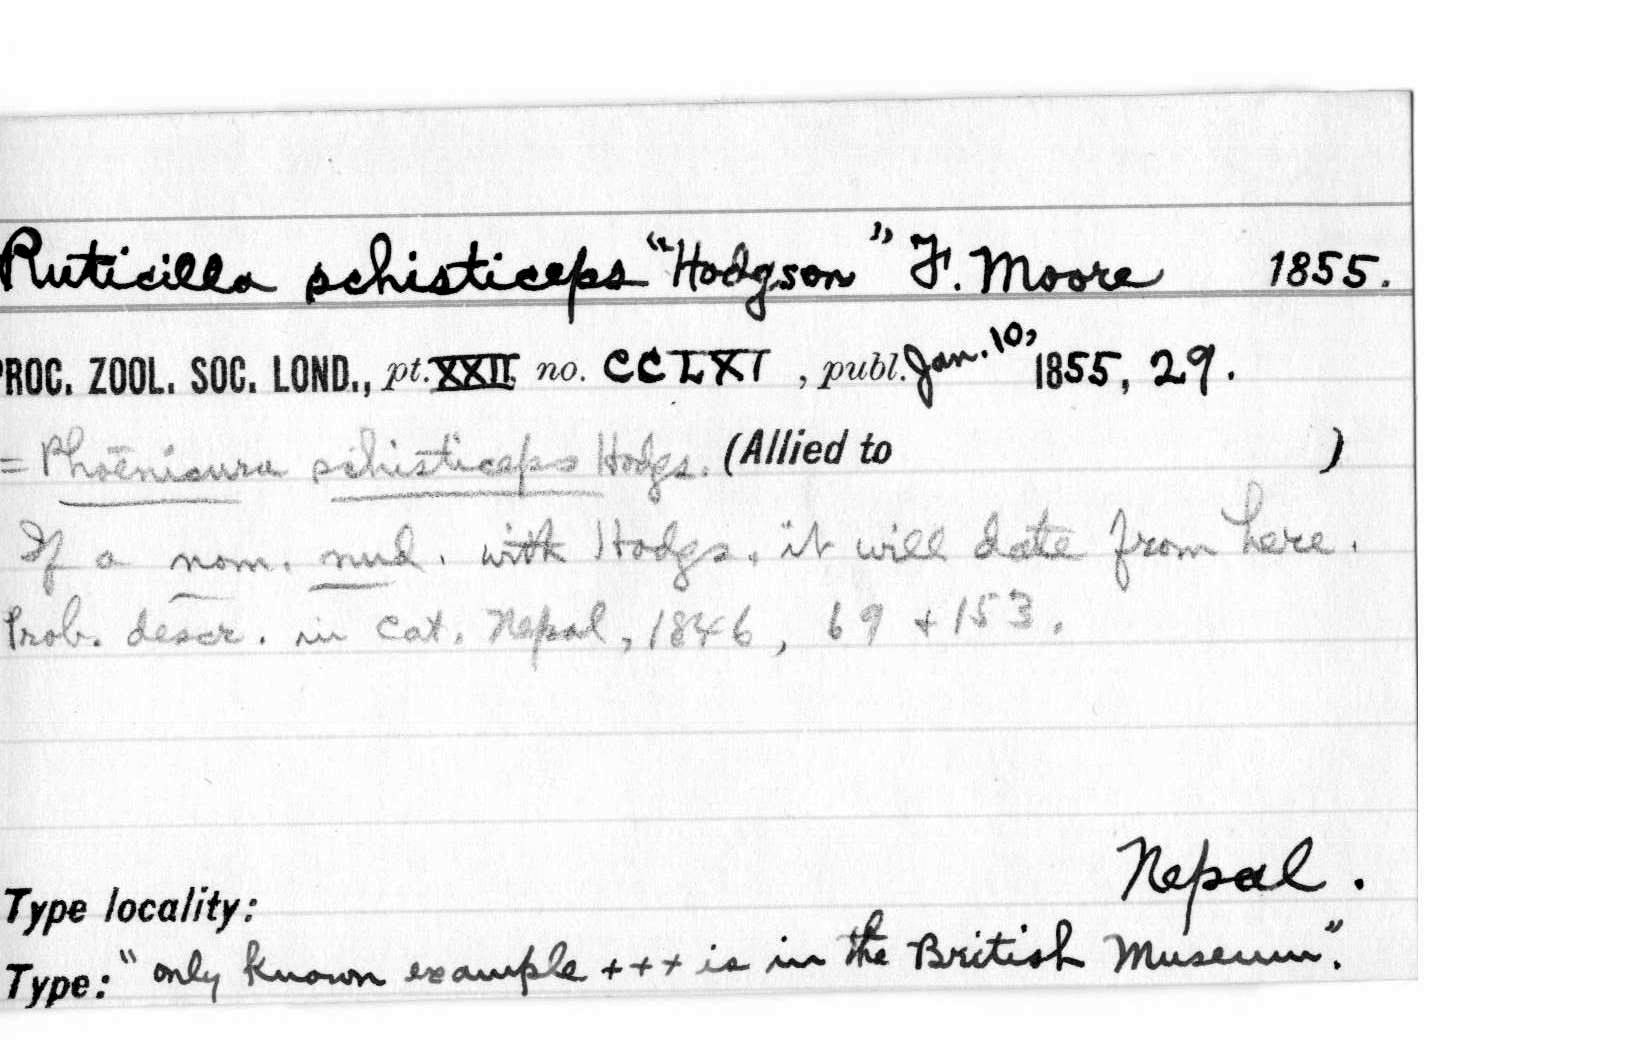 Ruticilla schisticeps "Hodgson" F. Moore 1855.
PROC. ZOOL. SOC. LOND., pt. XXII no. CCLXI, publ. Jan. 10, 1855, 29.
= Phoēnicura schisticeps Hodgs. (Allied to )
If a nom. nud. with Hodgs. it will date from here.
Prob. descr. in Cat. Nepal, 1846, 69 + 153.
Nepal.
Type locality:
Type: "only known example + + + is in the British Museum".